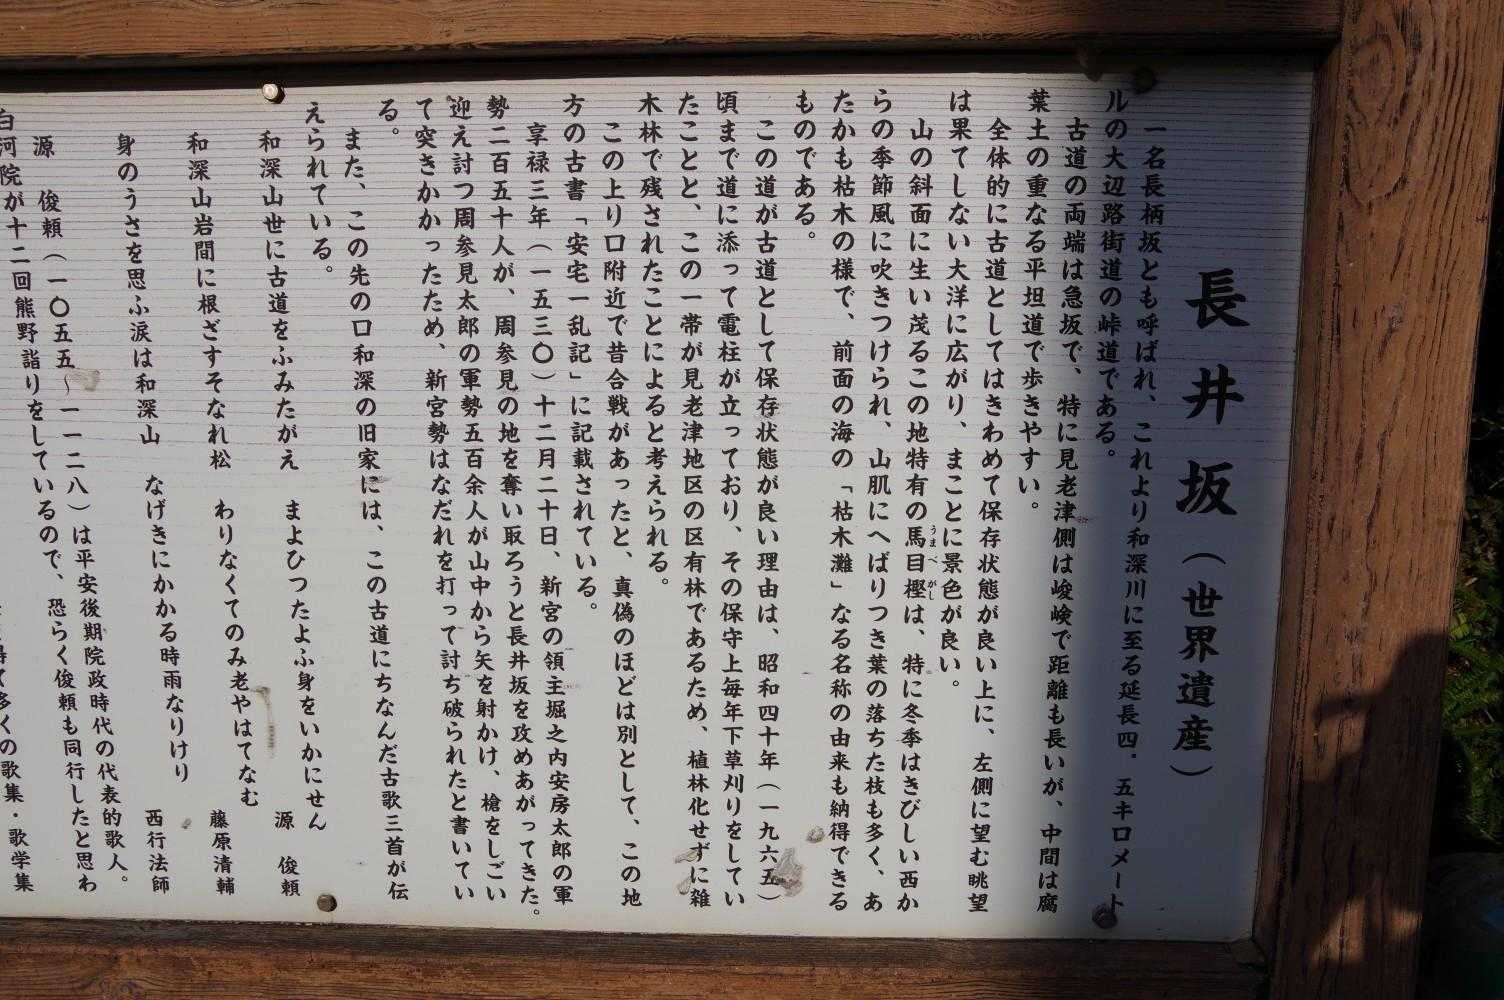 長井坂（世界遺産）
一名長柄坂とも呼ばれ、これより和深川に至る延長四．五キロメート
ルの大辺路街道の峠道である。
古道の両端は急坂で、特に見老津側は峻嶮で距離も長いが、中間は腐
葉土の重なる平坦道で歩きやすい。
全体的に古道としてはきわめて保存状態が良い上に、左側に望む眺望
は果てしない大洋に広がり、まことに景色が良い。
山の斜面に生い茂るこの地特有の馬目樫は、特に冬季はきびしい西か
うまべがし
らの季節風に吹きつけられ、山肌にへばりつき葉の落ちた枝も多く、あ
たかも枯木の様で、前面の海の「枯木灘」なる名称の由来も納得できる
ものである。
この道が古道として保存状態が良い理由は、昭和四十年（一九六五）
頃まで道に添って電柱が立っており、その保守上毎年下草刈りをしてい
たことと、この一帯が見老津地区の区有林であるため、植林化せずに雑
木林で残されたことによると考えられる。
この上り口附近で昔合戦があったと、真偽のほどは別として、この地
方の古書「安宅一乱記」に記載されている。
享禄三年（一五三〇）十二月二十日、新宮の領主堀之内安房太郎の軍
勢二百五十人が、周参見の地を奪い取ろうと長井坂を攻めあがってきた。
迎え討つ周参見太郎の軍勢五百余人が山中から矢を射かけ、槍をしごい
て突きかかったため、新宮勢はなだれを打って討ち破られたと書いてい
る。
また、この先の口和深の旧家には、この古道にちなんだ古歌三首が伝
えられている。
和深山世に古道をふみたがえ　まよひつたよふ身をいかにせん　源　俊頼
和深山岩間に根ざすそなれ松　わりなくてのみ老やはてなむ　藤原清輔
身のうさを思ふ涙は和深山　なげきにかかる時雨なりけり　西行法師
源　俊頼（一〇五五～一一二八）は平安後期院政時代の代表的歌人。
白河院が十二回熊野詣りをしているので、恐らく俊頼も同行したと思わ
多くの歌集・歌学集